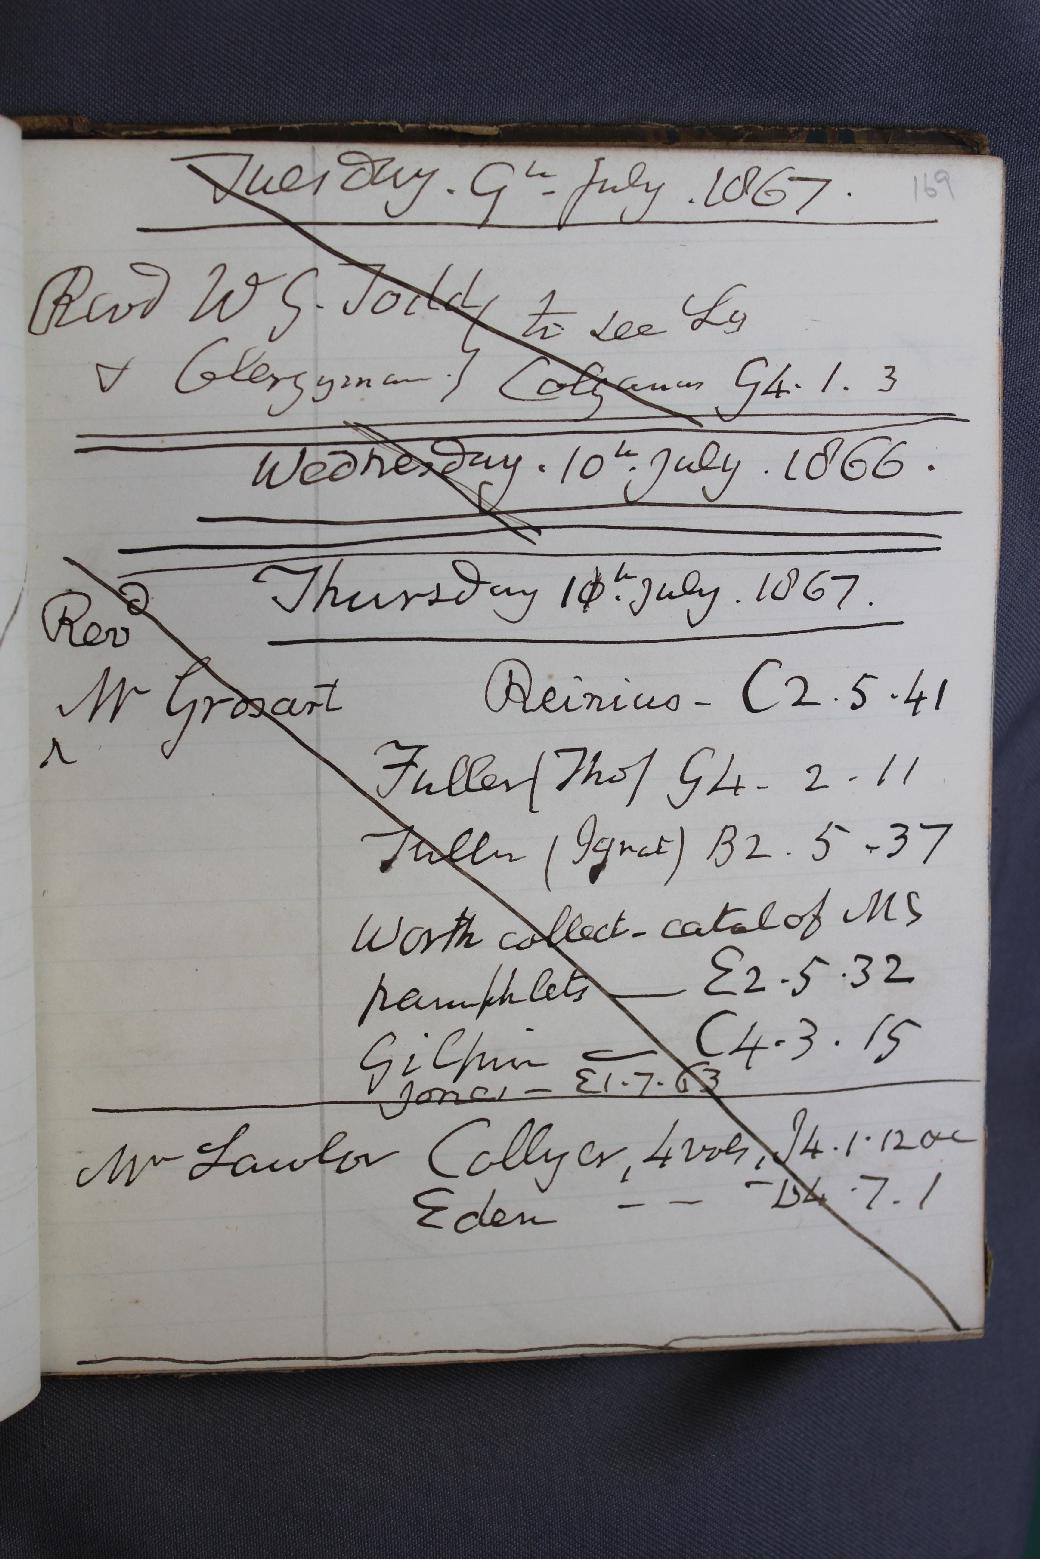 169
Tuesday. 9th July. 1867.
Revd W G. Todd to see Ly
& Clergyman } Colganus G4. 1. 3
Wednesday. 10th July. 1866.
Thursday 11th July. 1867.
Revd
Mr Grosart Reinius - C2.5.41
Fuller (Tho) G4. 2. 11
Fuller (Ignat) B2. 5. 37
Worth collect- catal of MS
pamphlets — E2.5.32
Gilpin — C4.3.15
Jones - E1.7.63
Mr Lawlor Collyer, 4 vols, J4.1.12 &c
Eden - - - D4.7.1